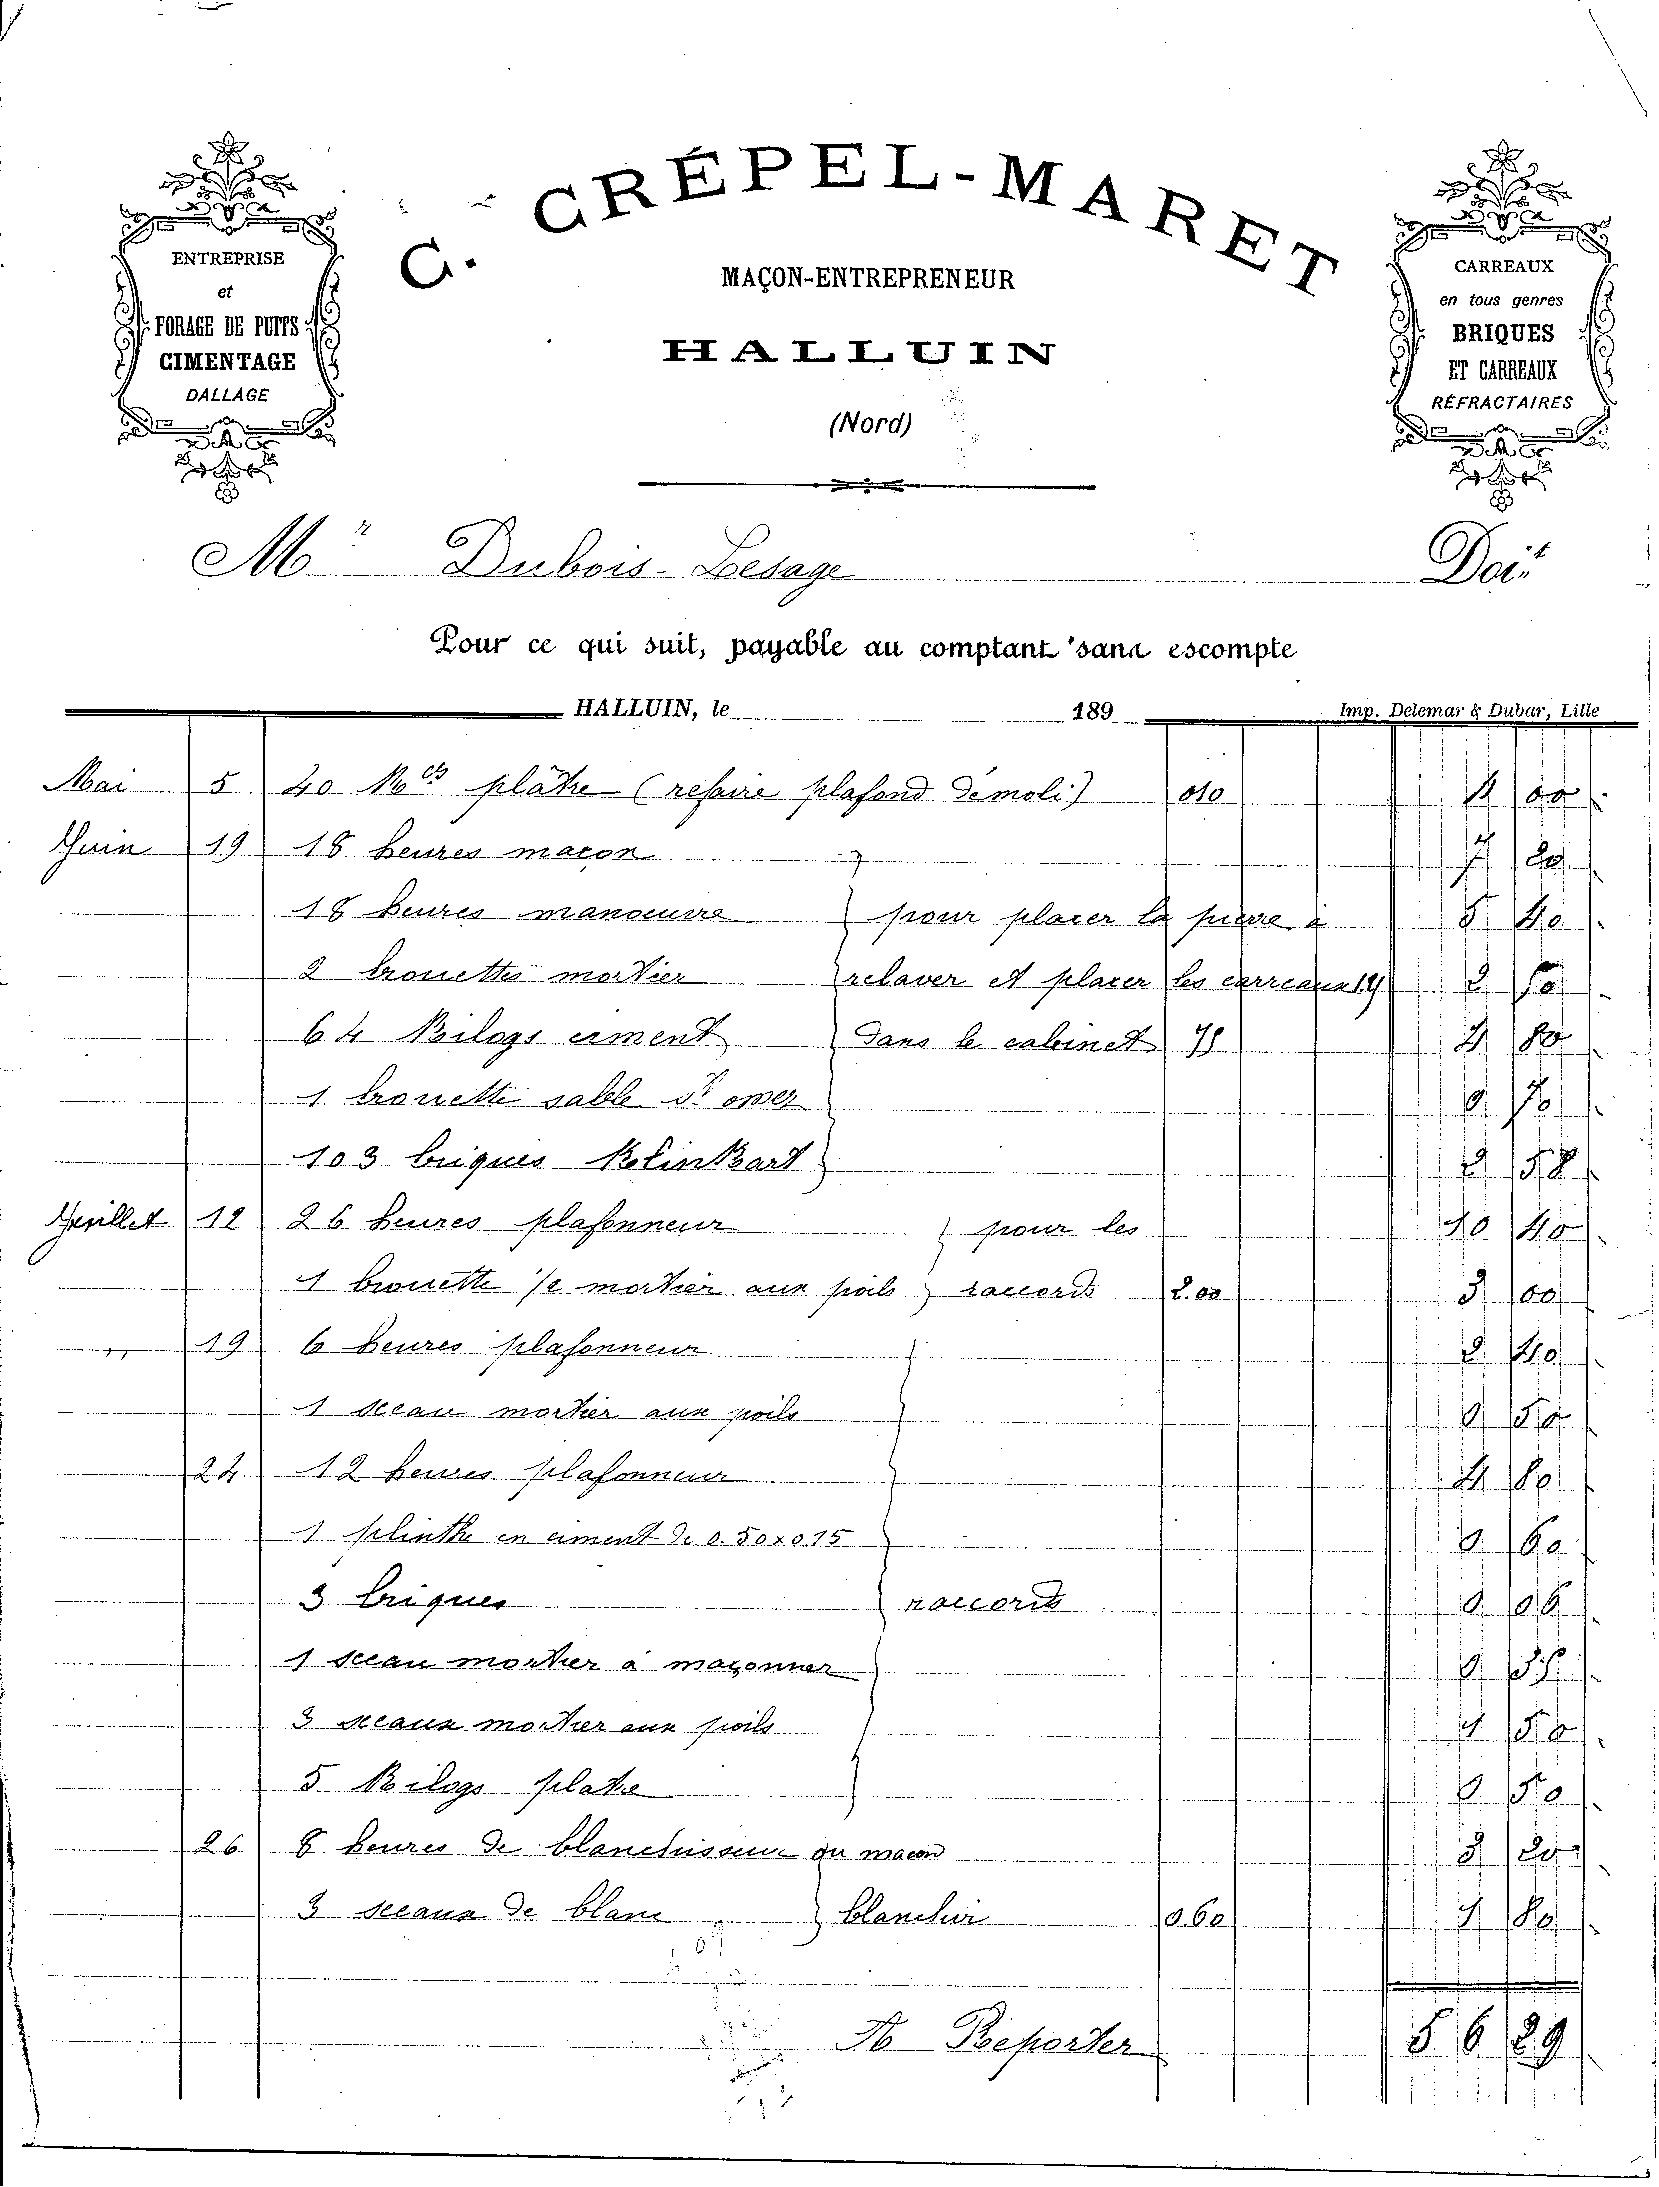 C. CRÉPEL-MARET
ENTREPRISE
et
FORAGE DE PUITS
CIMENTAGE
DALLAGE
MAÇON-ENTREPRENEUR
HALLUIN
(Nord)
CARREAUX
en tous genres
BRIQUES
ET CARREAUX
RÉFRACTAIRES
Mr Dubois-Lesage Doit
Pour ce qui suit, payable au comptant sans escompte
HALLUIN, le 189
Imp. Delemar & Dubar, Lille
Mai 5 40 Kos plâtre (refaire plafond démoli) 010 4 00
Juin 19 18 heures maçon 7 20
18 heures manoeuvre pour placer la pierre à 5 40
2 brouettes mortier relaver et placer les carreaux 2 50
64 Kilogs ciment dans le cabinet 75 4 80
1 brouette sable St omer 0 70
103 briques Klinkart 2 58
Juillet 12 26 heures plafonneur pour les 10 40
1 brouette 1/2 mortier aux poils raccords 2.00 3 00
" 19 6 heures plafonneur 2 40
1 sceau mortier aux poils 0 50
24 12 heures plafonneur 4 80
1 plinthe en ciment de 0.50x0.15 0 60
3 briques raccords 0 06
1 sceau mortier à maçonner 0 35
3 sceaux mortier aux poils 1 50
5 Kilogs platre 0 50
26 8 heures de blanchisseur ou macon 3 20
3 sceaux de blanc blanchir 0.60 1 80
A Reporter 56 29